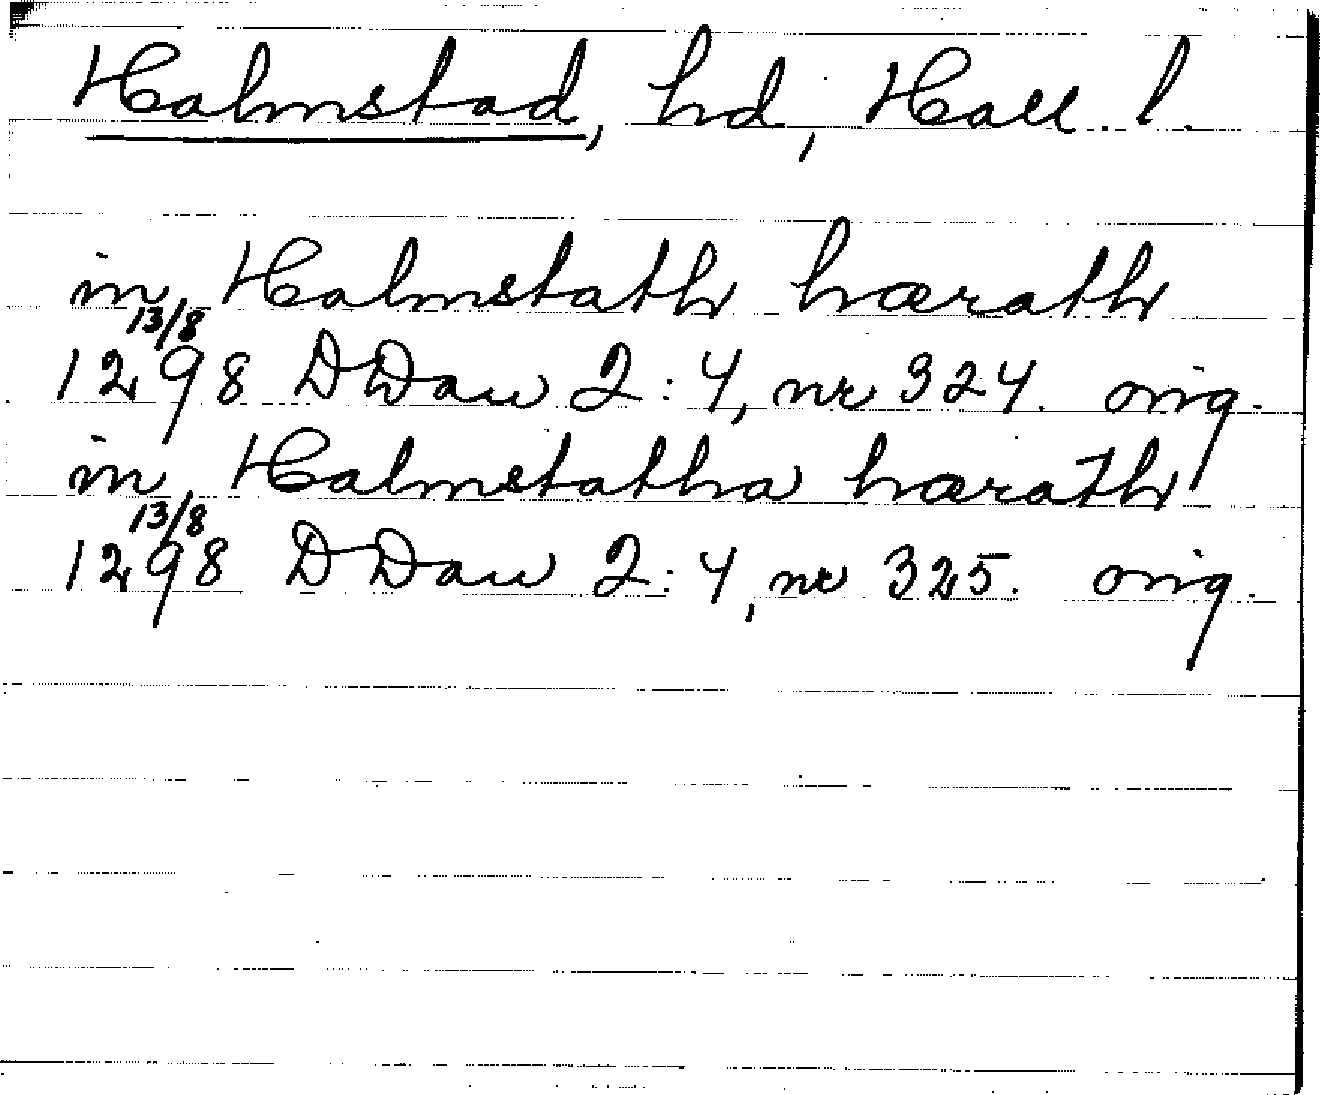 Halmstad, hd, Hall. l.
in Halmstath hærath
13/8
1298 DDan 2:4, nr 324. orig.
in Halmstatha hærath
13/8
1298 DDan 2:4, nr 325. orig.